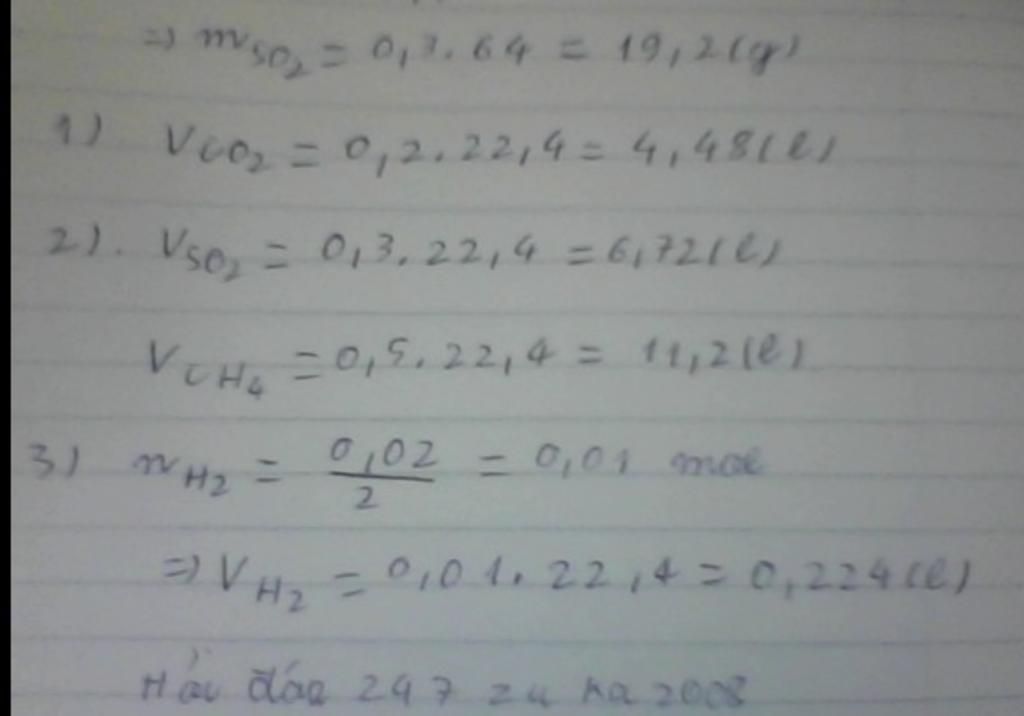 => mSO2 = 0,3.64 = 19,2(g)
1) VCO2 = 0,2.22,4 = 4,48(l)
2). VSO2 = 0,3.22,4 = 6,72(l)
VCH4 = 0,5.22,4 = 11,2(l)
3) nH2 = 0,02/2 = 0,01 mol
=> VH2 = 0,01.22,4 = 0,224(l)
Hỏi đáp 247 zu ka 2008